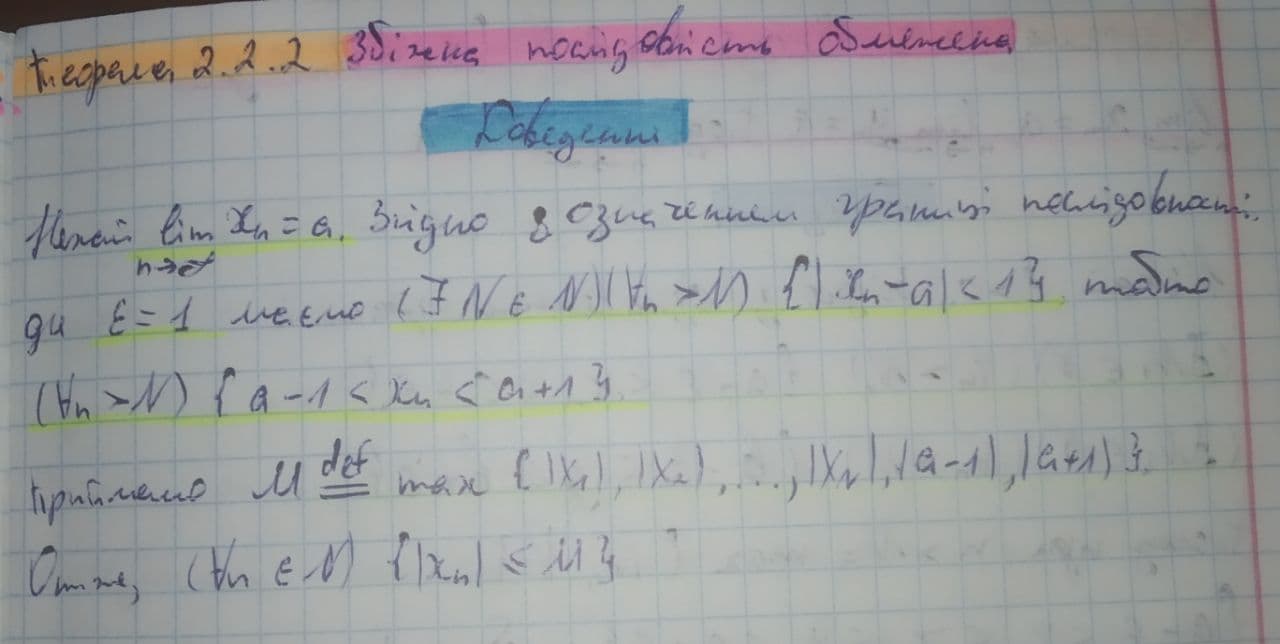 Теорема 2.2.2 Збіжна послідовність обмежена
Доведення
Нехай lim xₙ = a. Згідно з означенням границі послідовності
n→∞
для ε = 1 маємо (∃ N ∈ ℕ)(∀n > N) {|xₙ - a| < 1} тобто
(∀n > N) {a - 1 < xₙ < a + 1}.
Приймемо M def= max {|x₁|, |x₂|, ..., |x_N|, |a-1|, |a+1|}.
Отже, (∀n ∈ ℕ) {|xₙ| ≤ M}